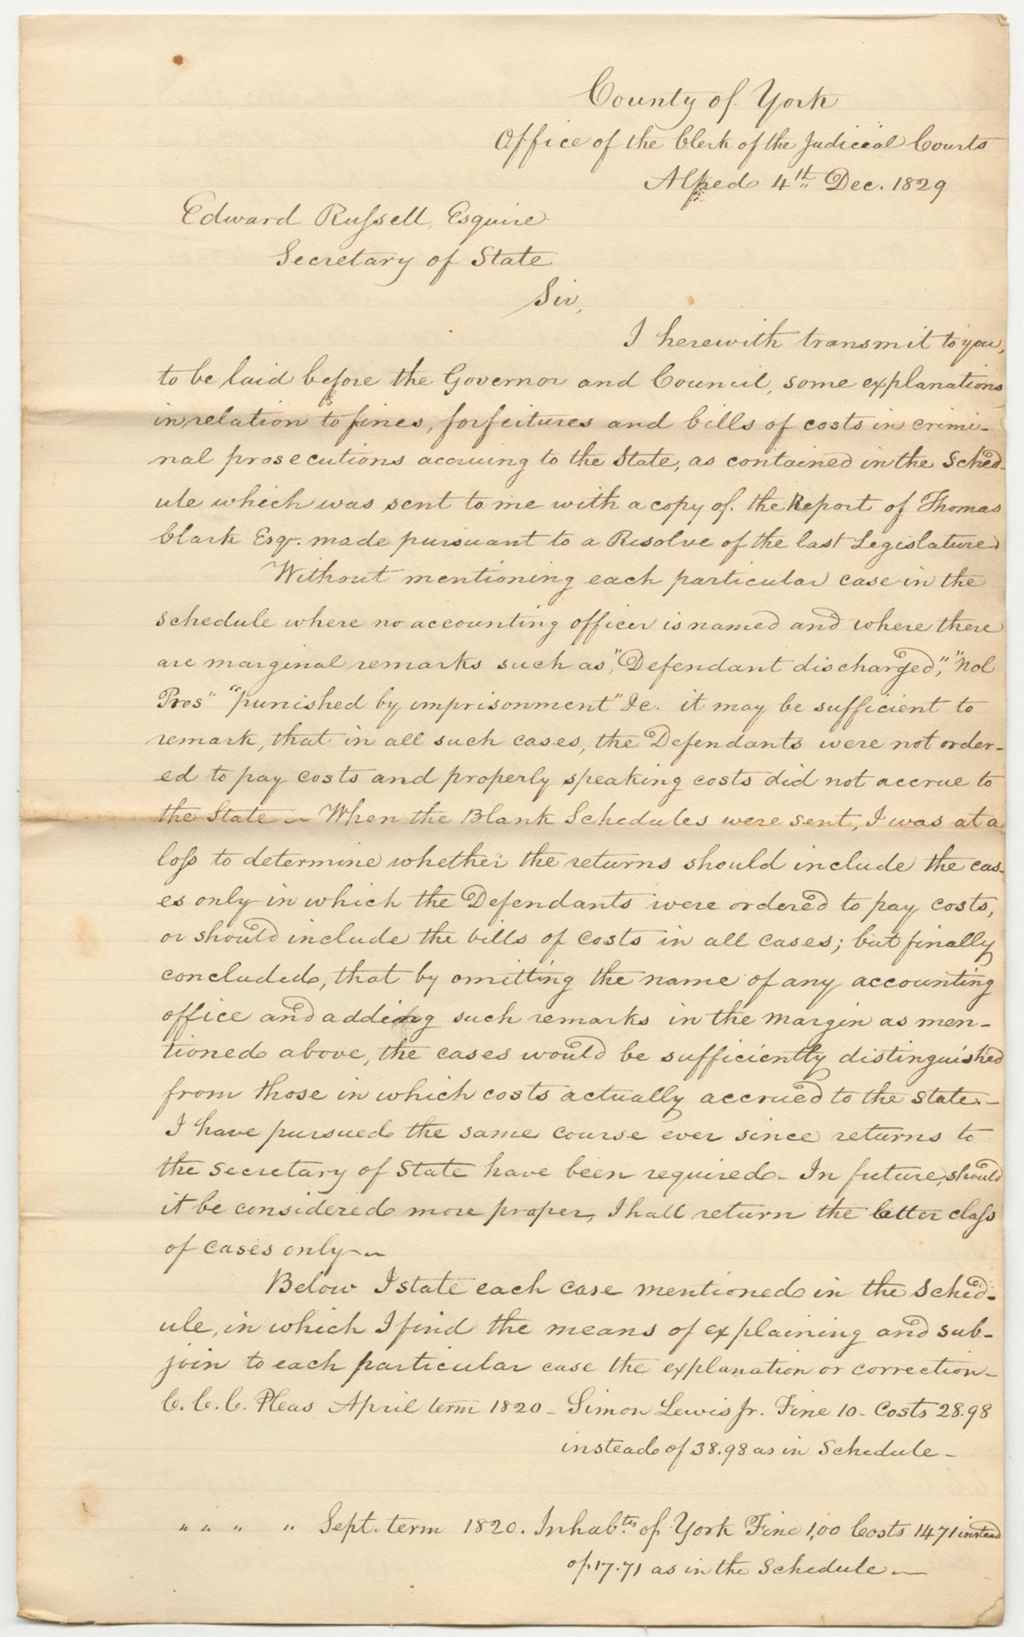 County of York
Office of the Clerk of the Judicial Courts
Alfred 4th Dec. 1829
Edward Russell, Esquire
Secretary of State
Sir,
I herewith transmit to you,
to be laid before the Governor and Council, some explanations
in relation to fines, forfeitures and bills of costs in crimi-
nal prosecutions accruing to the State, as contained in the Sched-
ule which was sent to me with a copy of the Report of Thomas
Clark Esqr. made pursuant to a Resolve of the last Legislature
Without mentioning each particular case in the
schedule where no accounting officer is named and where there
are marginal remarks such as, "Defendant discharged," "Nol
Pros" "punished by imprisonment" &c. it may be sufficient to
remark, that in all such cases, the Defendants were not order-
ed to pay costs and properly speaking costs did not accrue to
the State — When the Blank Schedules were sent, I was at a
loss to determine whether the returns should include the cas-
es only in which the Defendants were ordered to pay costs,
or should include the bills of costs in all cases; but finally
concluded, that by omitting the name of any accounting
office and adding such remarks in the margin as men-
tioned above, the cases would be sufficiently distinguished
from those in which costs actually accrued to the State. —
I have pursued the same course ever since returns to
the Secretary of State have been required. In future, should
it be considered more proper, I hall return the latter class
of cases only —
Below I state each case mentioned in the Sched-
ule, in which I find the means of explaining and sub-
join to each particular case the explanation or correction —
C. C. C. Pleas April term 1820 — Simon Lewis Jr. Fine 10 — Costs 28.98
instead of 38.98 as in Schedule —
" " " " Sept. term 1820. Inhabts of York Fine 1,00 Costs 1471 instead
of 17.71 as in the Schedule —